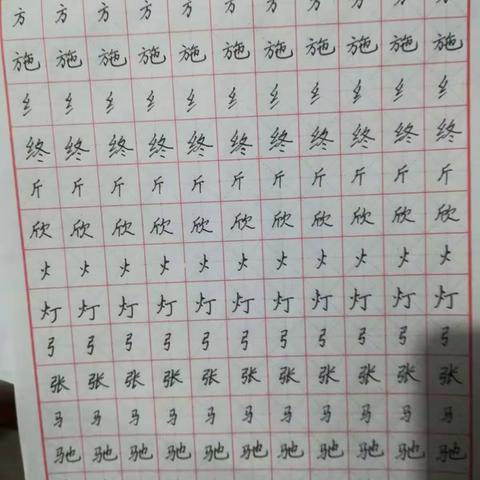 方方方方方方方方方方方
施施施施施施施施施施施
纟纟纟纟纟纟纟纟纟纟纟
终终终终终终终终终终终
斤斤斤斤斤斤斤斤斤斤斤
欣欣欣欣欣欣欣欣欣欣欣
火火火火火火火火火火火
灯灯灯灯灯灯灯灯灯灯灯
弓弓弓弓弓弓弓弓弓弓弓
张张张张张张张张张张张
马马马马马马马马马马马
驰驰驰驰驰驰驰驰驰驰驰